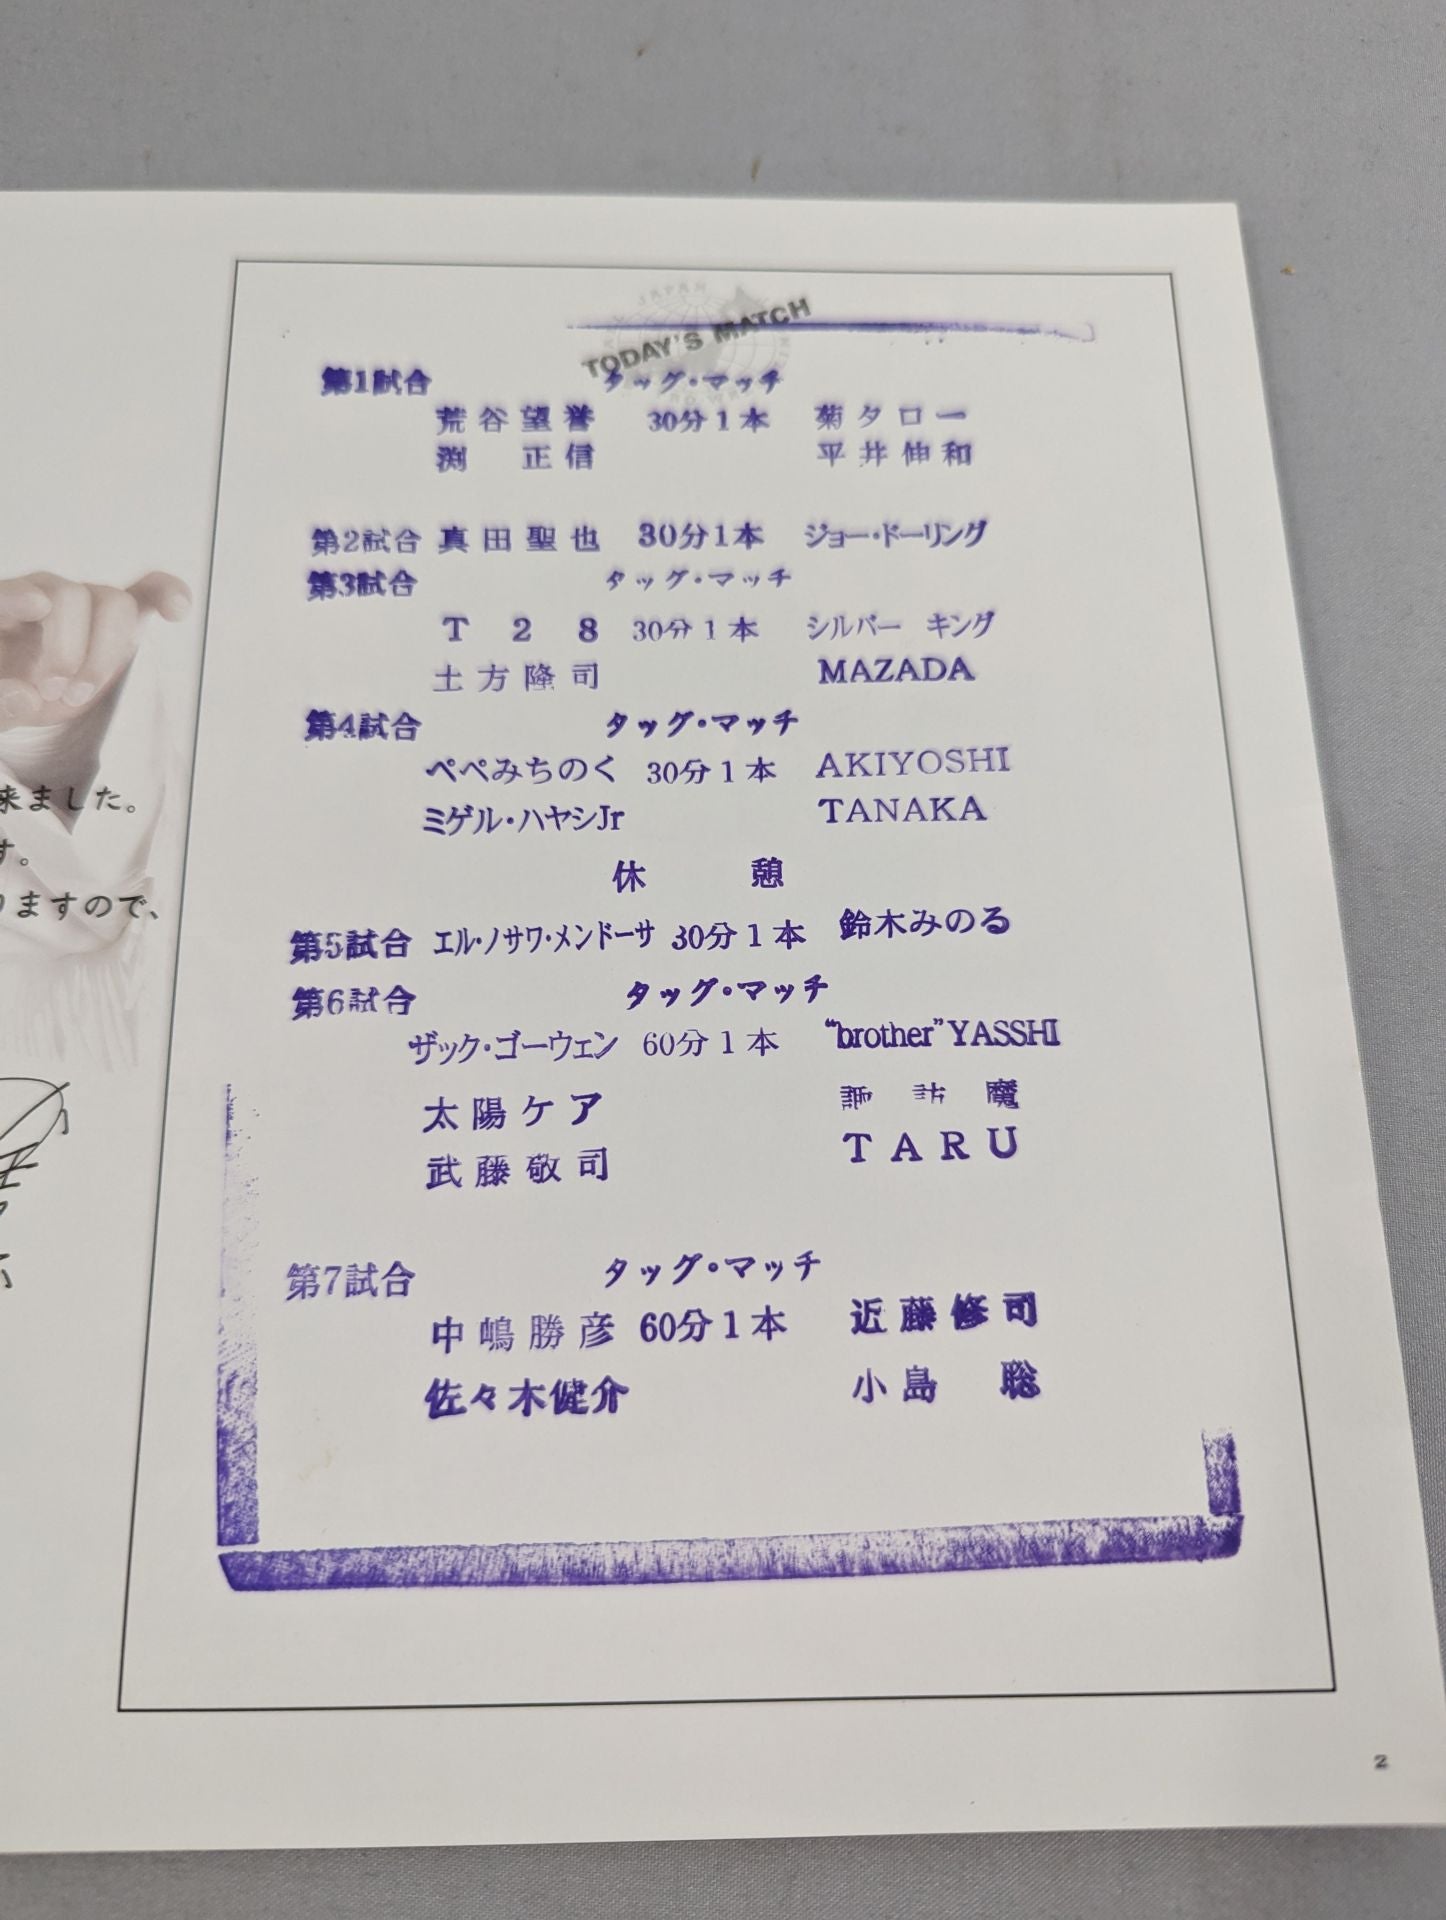 TODAY'S MATCH
第1試合 タッグ・マッチ
荒谷望誉 30分1本 菊タロー
渕 正信 平井伸和
第2試合 真田聖也 30分1本 ジョー・ドーリング
第3試合 タッグ・マッチ
T28 30分1本 シルバー キング
土方隆司 MAZADA
第4試合 タッグ・マッチ
ペペみちのく 30分1本 AKIYOSHI
ミゲル・ハヤシJr TANAKA
休 憩
第5試合 エル・ノサワ・メンドーサ 30分1本 鈴木みのる
第6試合 タッグ・マッチ
ザック・ゴーウェン 60分1本 “brother”YASSHI
太陽ケア 諏訪魔
武藤敬司 TARU
第7試合 タッグ・マッチ
中嶋勝彦 60分1本 近藤修司
佐々木健介 小島 聡
来ました。
す。
りますので、
2